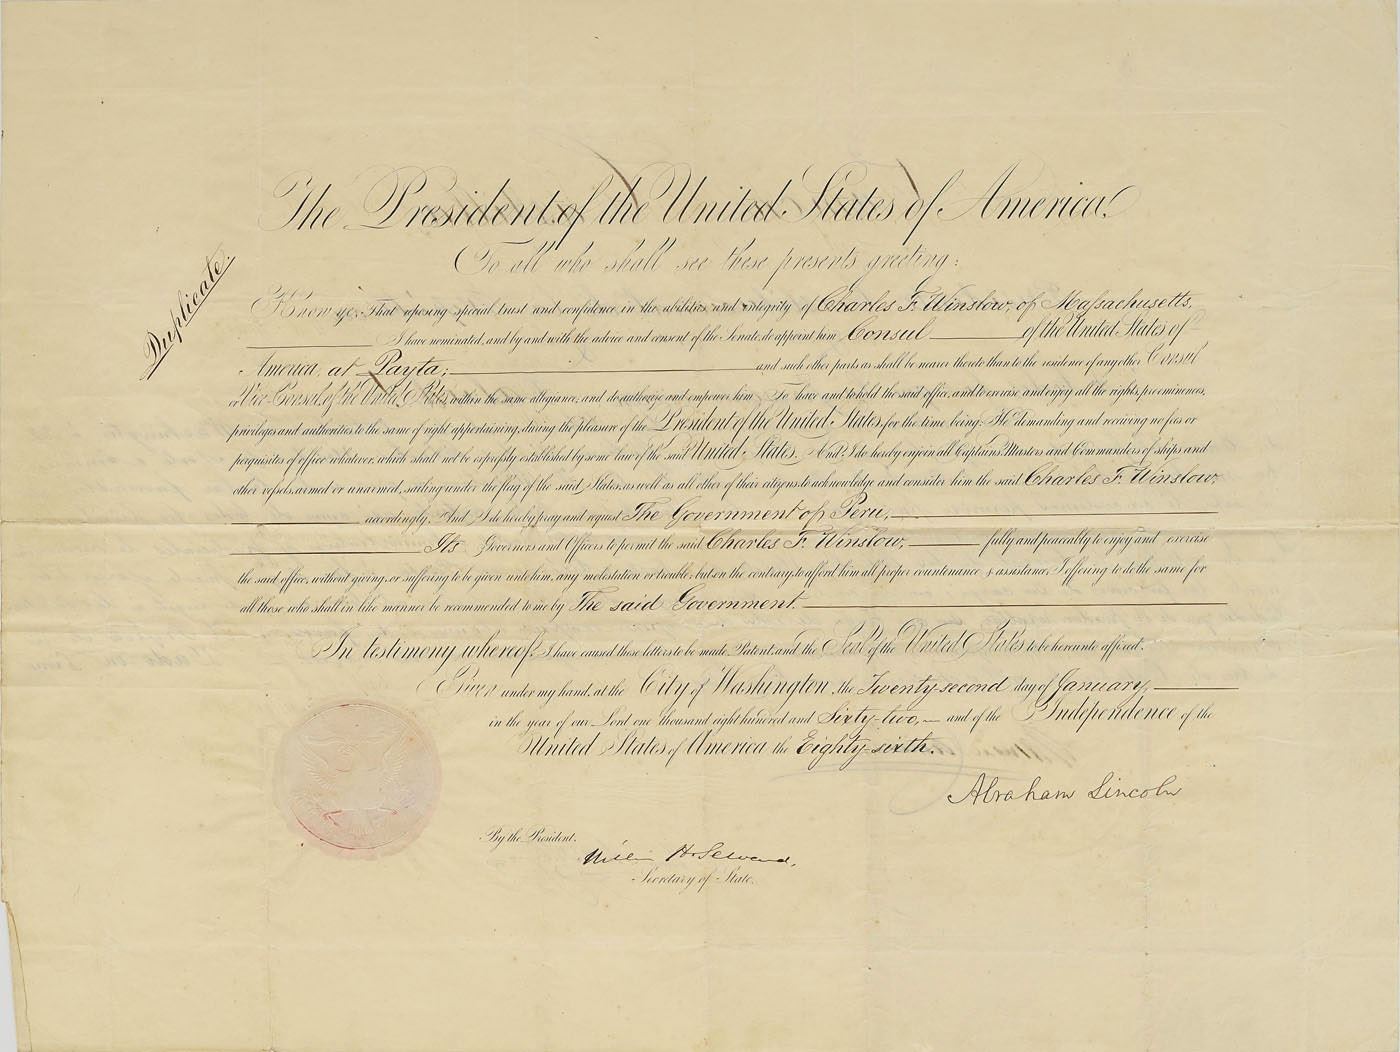 Duplicate.
The President of the United States of America.
To all who shall see these presents greeting:
Know ye; That reposing special trust and confidence in the abilities and integrity of Charles F. Winslow, of Massachusetts,
I have nominated, and by and with the advice and consent of the Senate, do appoint him Consul of the United States of
America, at Payta; and such other parts as shall be nearer thereto than to the residence of any other Consul
or Vice-Consul of the United States, within the same allegiance; and do authorize and empower him To have and to hold the said office, and to exercise and enjoy all the rights, preeminences,
privileges and authorities to the same of right appertaining, during the pleasure of the President of the United States, for the time being; He demanding and receiving no fees or
perquisites of office whatever, which shall not be expressly established by some law of the said United States. And I do hereby enjoin all Captains, Masters and Commanders of ships and
other vessels, armed or unarmed, sailing under the flag of the said States, as well as all other of their citizens, to acknowledge and consider him the said Charles F. Winslow,
accordingly. And I do hereby pray and request The Government of Peru,
Its Governors and Officers to permit the said Charles F. Winslow, fully and peaceably to enjoy and exercise
the said office, without giving, or suffering to be given unto him, any molestation or trouble, but on the contrary, to afford him all proper countenance & assistance; I offering to do the same for
all those who shall in like manner be recommended to me by The said Government.
In testimony whereof, I have caused these letters to be made Patent, and the Seal of the United States to be hereunto affixed.
Given under my hand, at the City of Washington, the Twenty-second day of January,
in the year of our Lord one thousand eight hundred and Sixty-two, and of the Independence of the
United States of America the Eighty-sixth.
Abraham Lincoln
By the President.
William H. Seward,
Secretary of State.